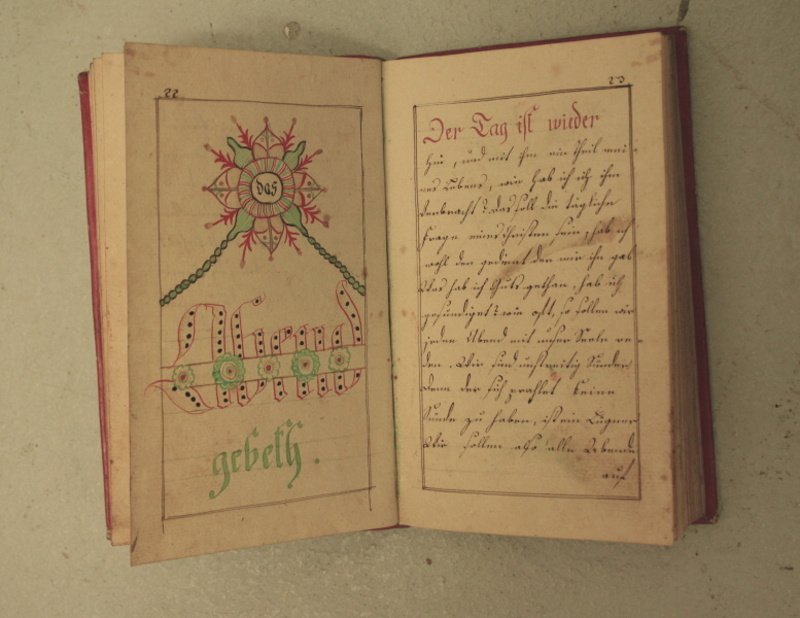 22
das
Abend
gebeth.
23
Der Tag ist wieder
hin, und mit ihm ein Theil mei-
nes Lebens, wie hab ich ihn
verbracht? das soll die tägliche
Frage eines Christen sein, hab ich
wohl dem gedient der mir ihn gab
Was hab ich Guts gethan, hab ich
gesündiget? wie oft, so sollen wir
jeden Abend mit unser Seele re-
den. Wir sind unstreitig Sünder
denn der sich prahlet keine
Sünde zu haben, ist ein Lügner
Wir sollen also alle Abende
auf